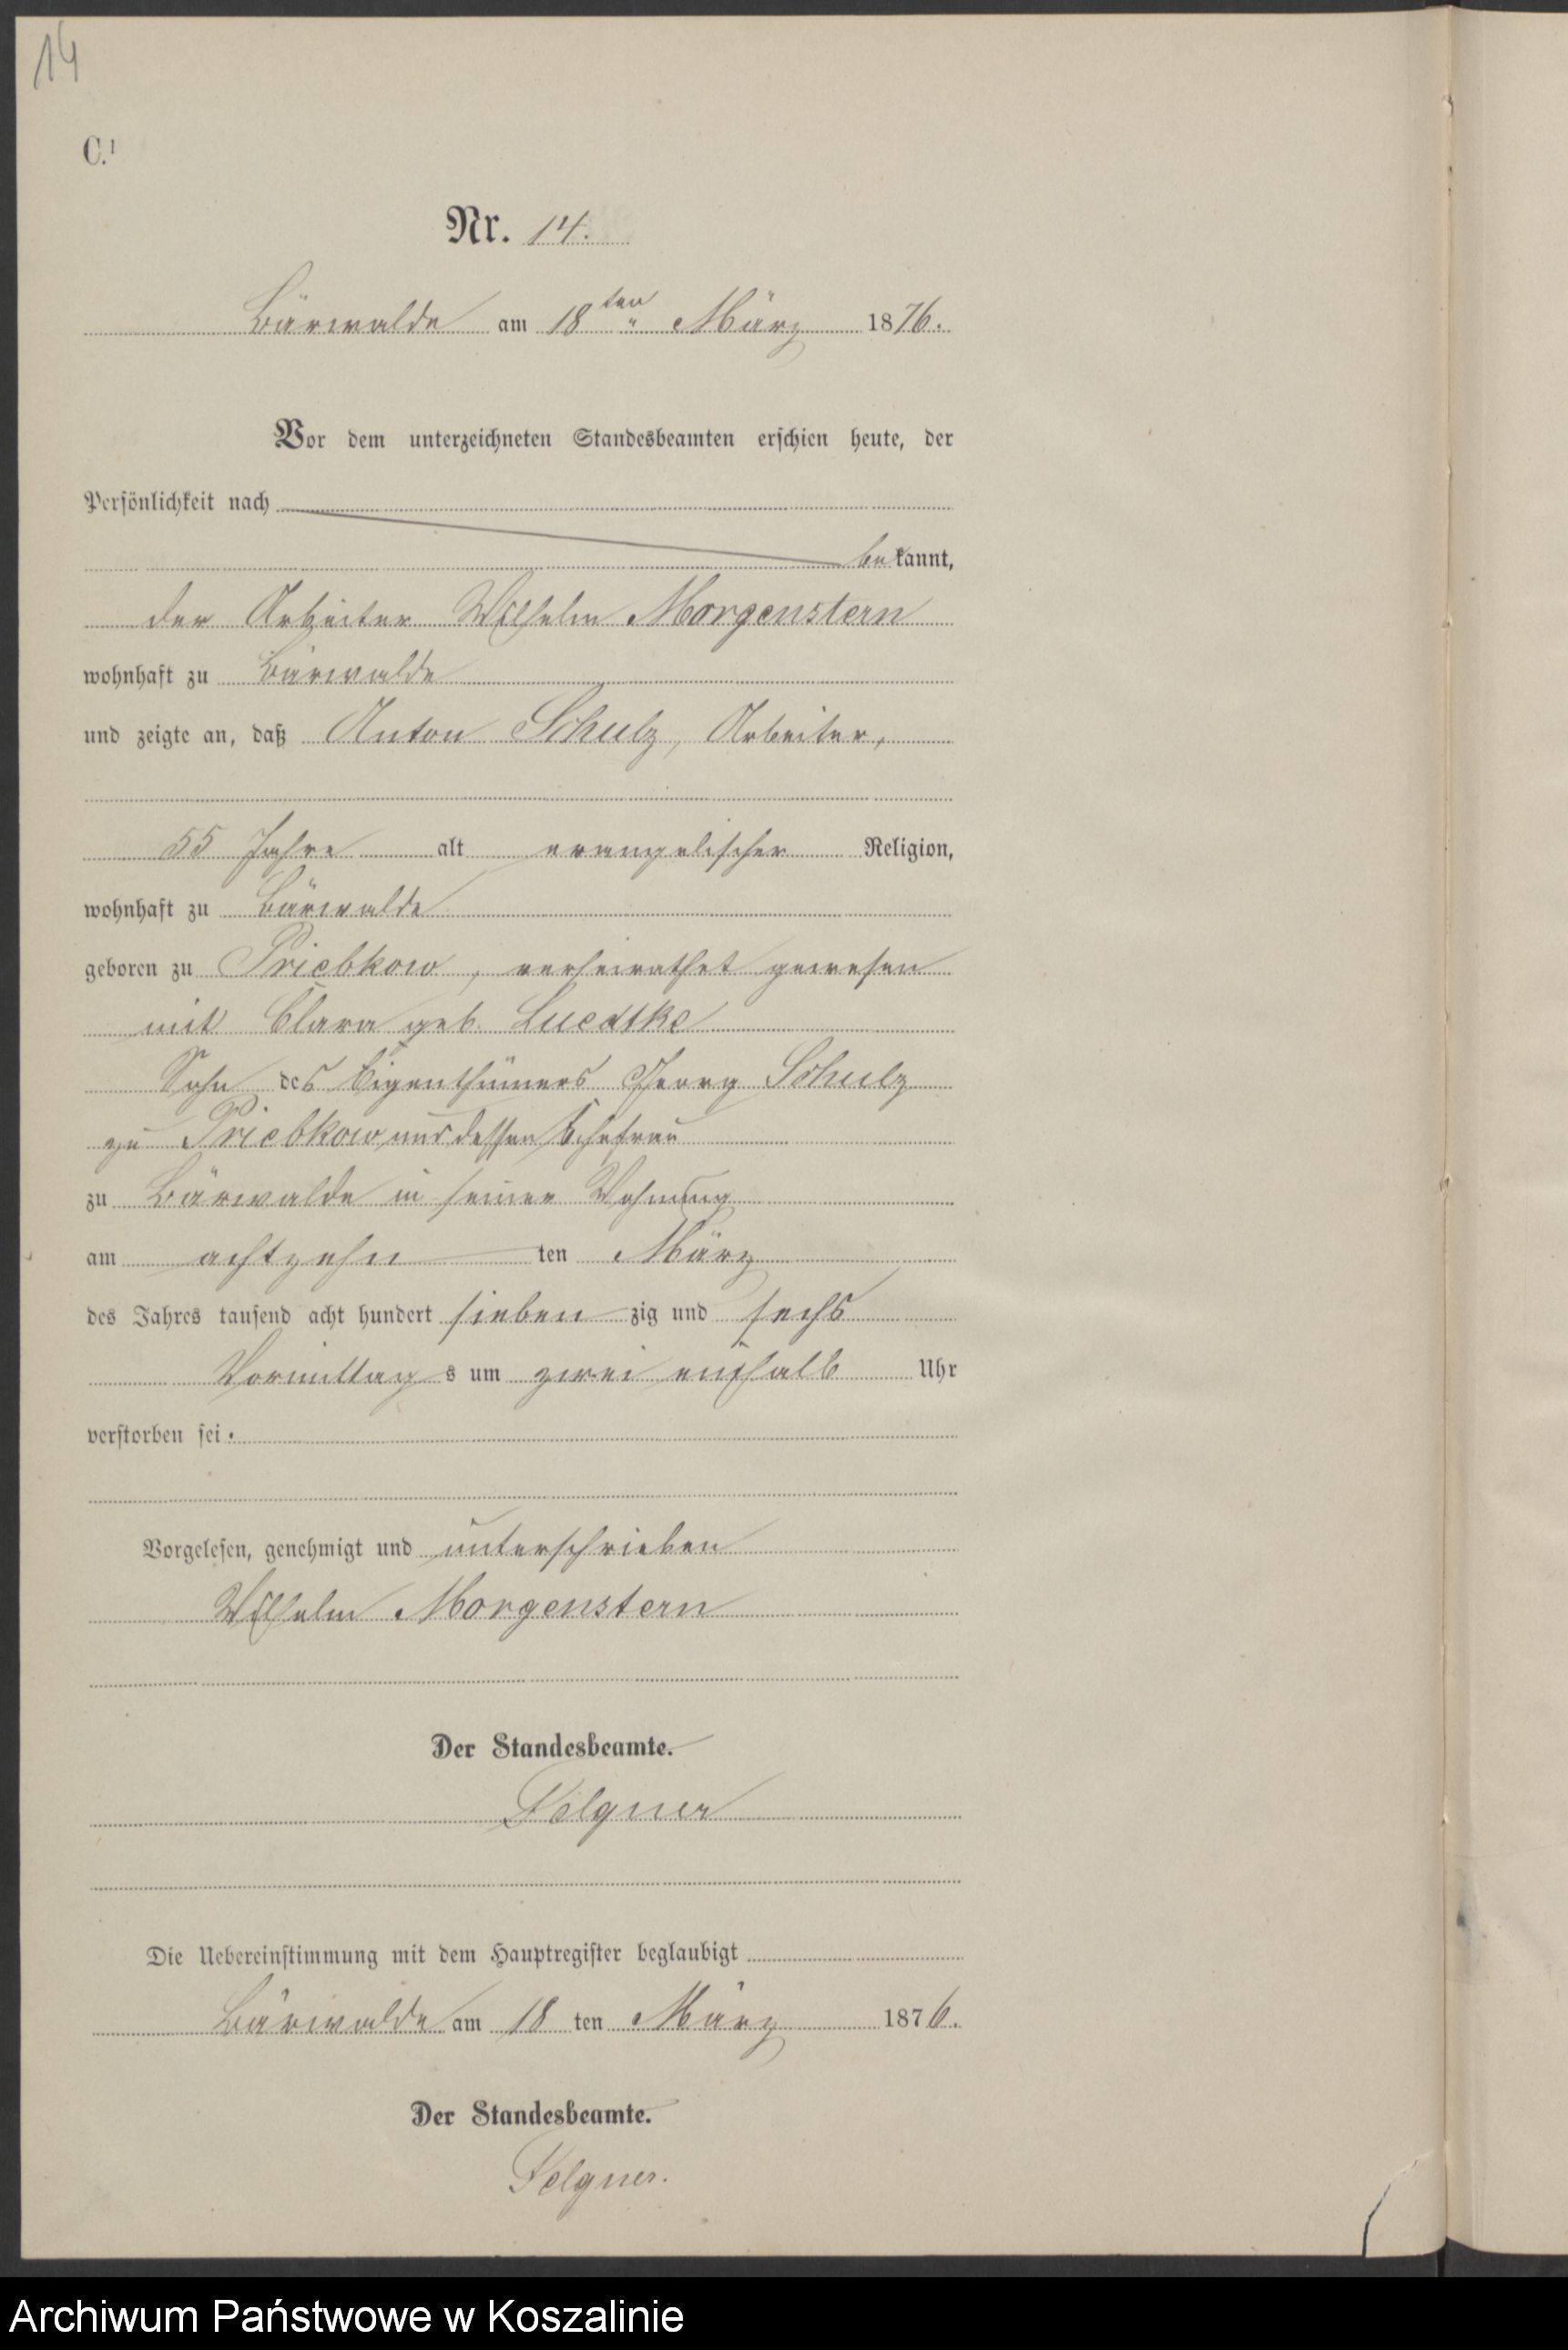 14
C.¹
Nr. 14.
Bärwalde am 18ten März 1876.
Vor dem unterzeichneten Standesbeamten erschien heute, der
Persönlichkeit nach
bekannt,
der Arbeiter Wilhelm Morgenstern
wohnhaft zu Bärwalde
und zeigte an, daß Anton Schulz, Arbeiter,
55 Jahre alt evangelischer Religion,
wohnhaft zu Bärwalde
geboren zu Priebkow, verheirathet gewesen
mit Clara geb. Luedtke
Sohn des Eigenthümers Georg Schulz
zu Priebkow und dessen Ehefrau
zu Bärwalde in seiner Wohnung
am achtzehn ten März
des Jahres tausend acht hundert sieben zig und sechs
Vormittag s um zwei einhalb Uhr
verstorben sei.
Vorgelesen, genehmigt und unterschrieben
Wilhelm Morgenstern
Der Standesbeamte.
Felgner
Die Uebereinstimmung mit dem Hauptregister beglaubigt
Bärwalde am 18 ten März 1876.
Der Standesbeamte.
Felgner.
Archiwum Państwowe w Koszalinie